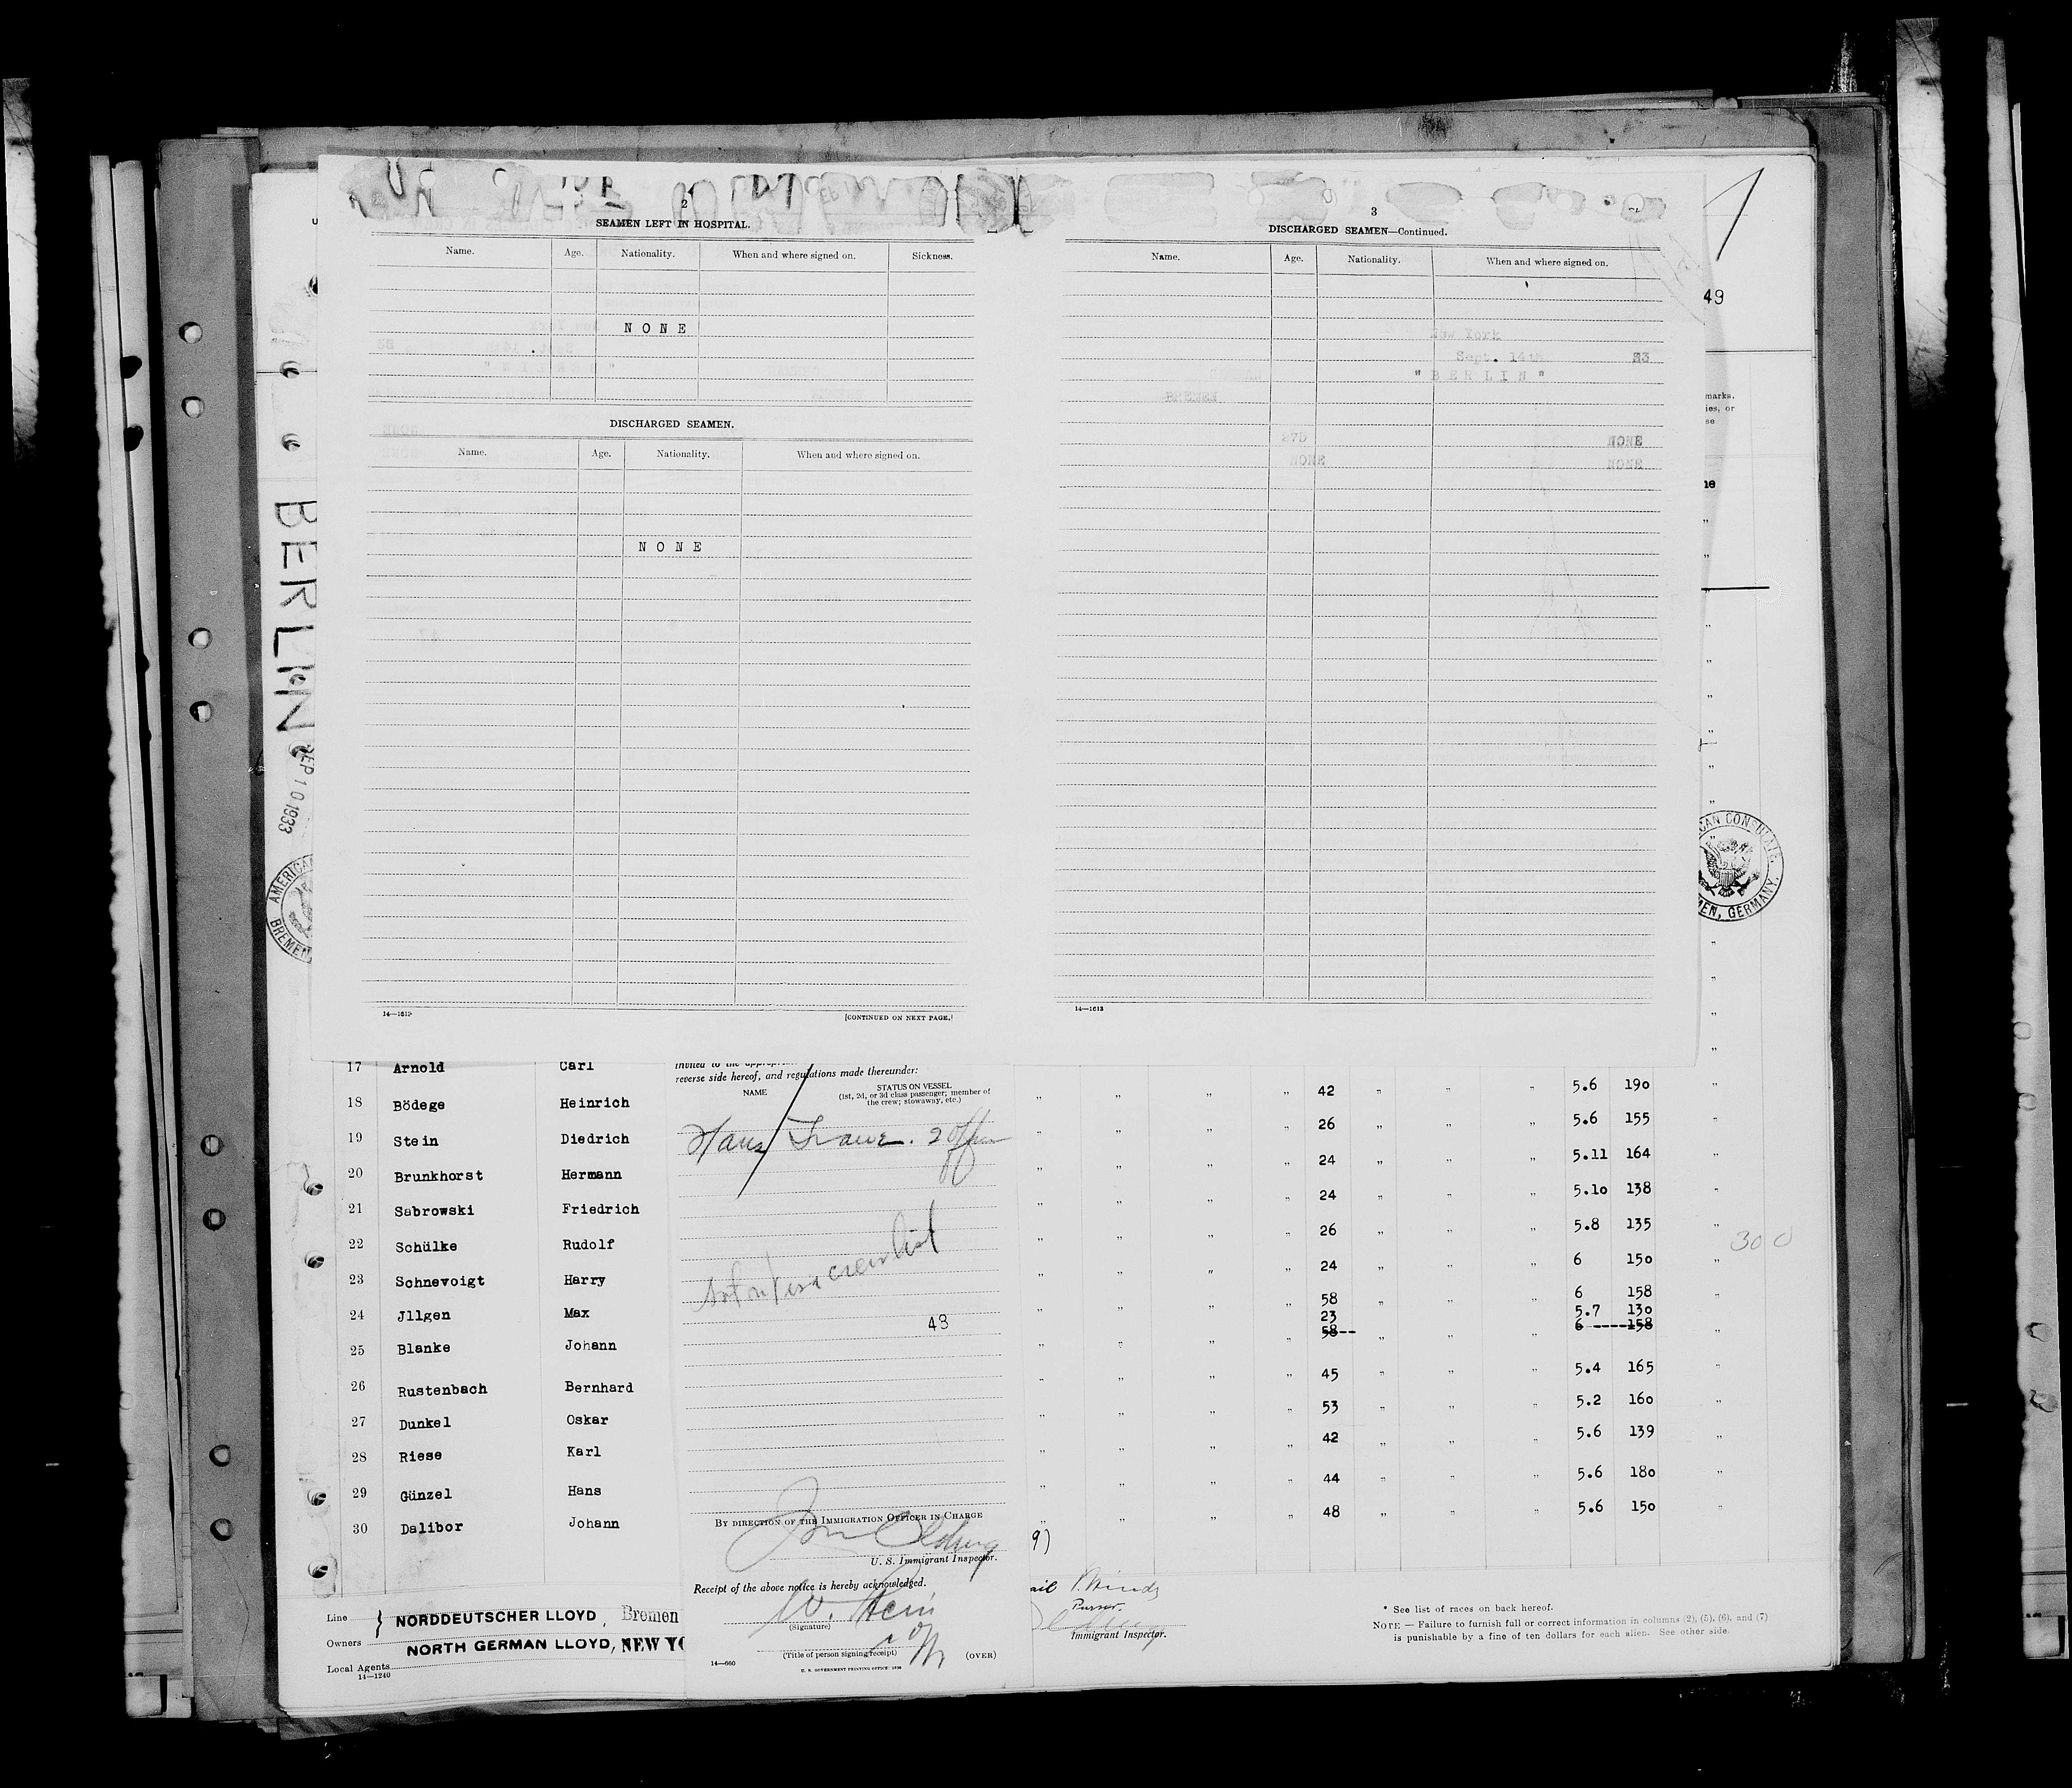 2
SEAMEN LEFT IN HOSPITAL.
Name. Age. Nationality. When and where signed on. Sickness.
NONE
DISCHARGED SEAMEN.
Name. Age. Nationality. When and where signed on.
NONE
14—1613
[CONTINUED ON NEXT PAGE.]
3
DISCHARGED SEAMEN—Continued.
Name. Age. Nationality. When and where signed on.
New York
Sept. 14th 33
"BERLIN"
BREMEN
275 NONE
NONE NONE
14—1613
49
marks.
ies, or
se
BERLIN
SEP 10 1933
AMERICAN
BREMEN
CAN CONSULATE
MEN, GERMANY.
17 Arnold Carl
18 Bödege Heinrich
19 Stein Diedrich
20 Brunkhorst Hermann
21 Sabrowski Friedrich
22 Schülke Rudolf
23 Schnevoigt Harry
24 Jllgen Max
25 Blanke Johann
26 Rustenbach Bernhard
27 Dunkel Oskar
28 Riese Karl
29 Günzel Hans
30 Dalibor Johann
reverse side hereof, and regulations made thereunder:
NAME STATUS ON VESSEL
(1st, 2d, or 3d class passenger; member of
the crew; stowaway, etc.)
Hans
crewlist
43
BY DIRECTION OF THE IMMIGRATION OFFICER IN CHARGE
U. S. Immigrant Inspector.
Receipt of the above notice is hereby acknowledged.
W. Stein
(Signature)
(Title of person signing receipt)
14—660
U. S. GOVERNMENT PRINTING OFFICE
(OVER)
„ „ „ „ 42 „ „ „ 5.6 190 „
„ „ „ „ 26 „ „ „ 5.6 155 „
„ „ „ „ 24 „ „ „ 5.11 164 „
„ „ „ „ 24 „ „ „ 5.10 138 „
„ „ „ „ 26 „ „ „ 5.8 135 „
„ „ „ „ 24 „ „ „ 6 150 „
300
„ „ „ „ 58 „ „ „ 6 158 „
23 5.7 130
58-- 6 ----158
„ „ „ „ 45 „ „ „ 5.4 165 „
„ „ „ „ 53 „ „ „ 5.2 160 „
„ „ „ „ 42 „ „ „ 5.6 139 „
„ „ „ „ 44 „ „ „ 5.6 180 „
„ „ „ „ 48 „ „ „ 5.6 150 „
9)
Purser.
Immigrant Inspector.
Line NORDDEUTSCHER LLOYD, Bremen
Owners
NORTH GERMAN LLOYD, NEW YO
Local Agents
14—1240
* See list of races on back hereof.
NOTE — Failure to furnish full or correct information in columns (2), (5), (6), and (7)
is punishable by a fine of ten dollars for each alien. See other side.